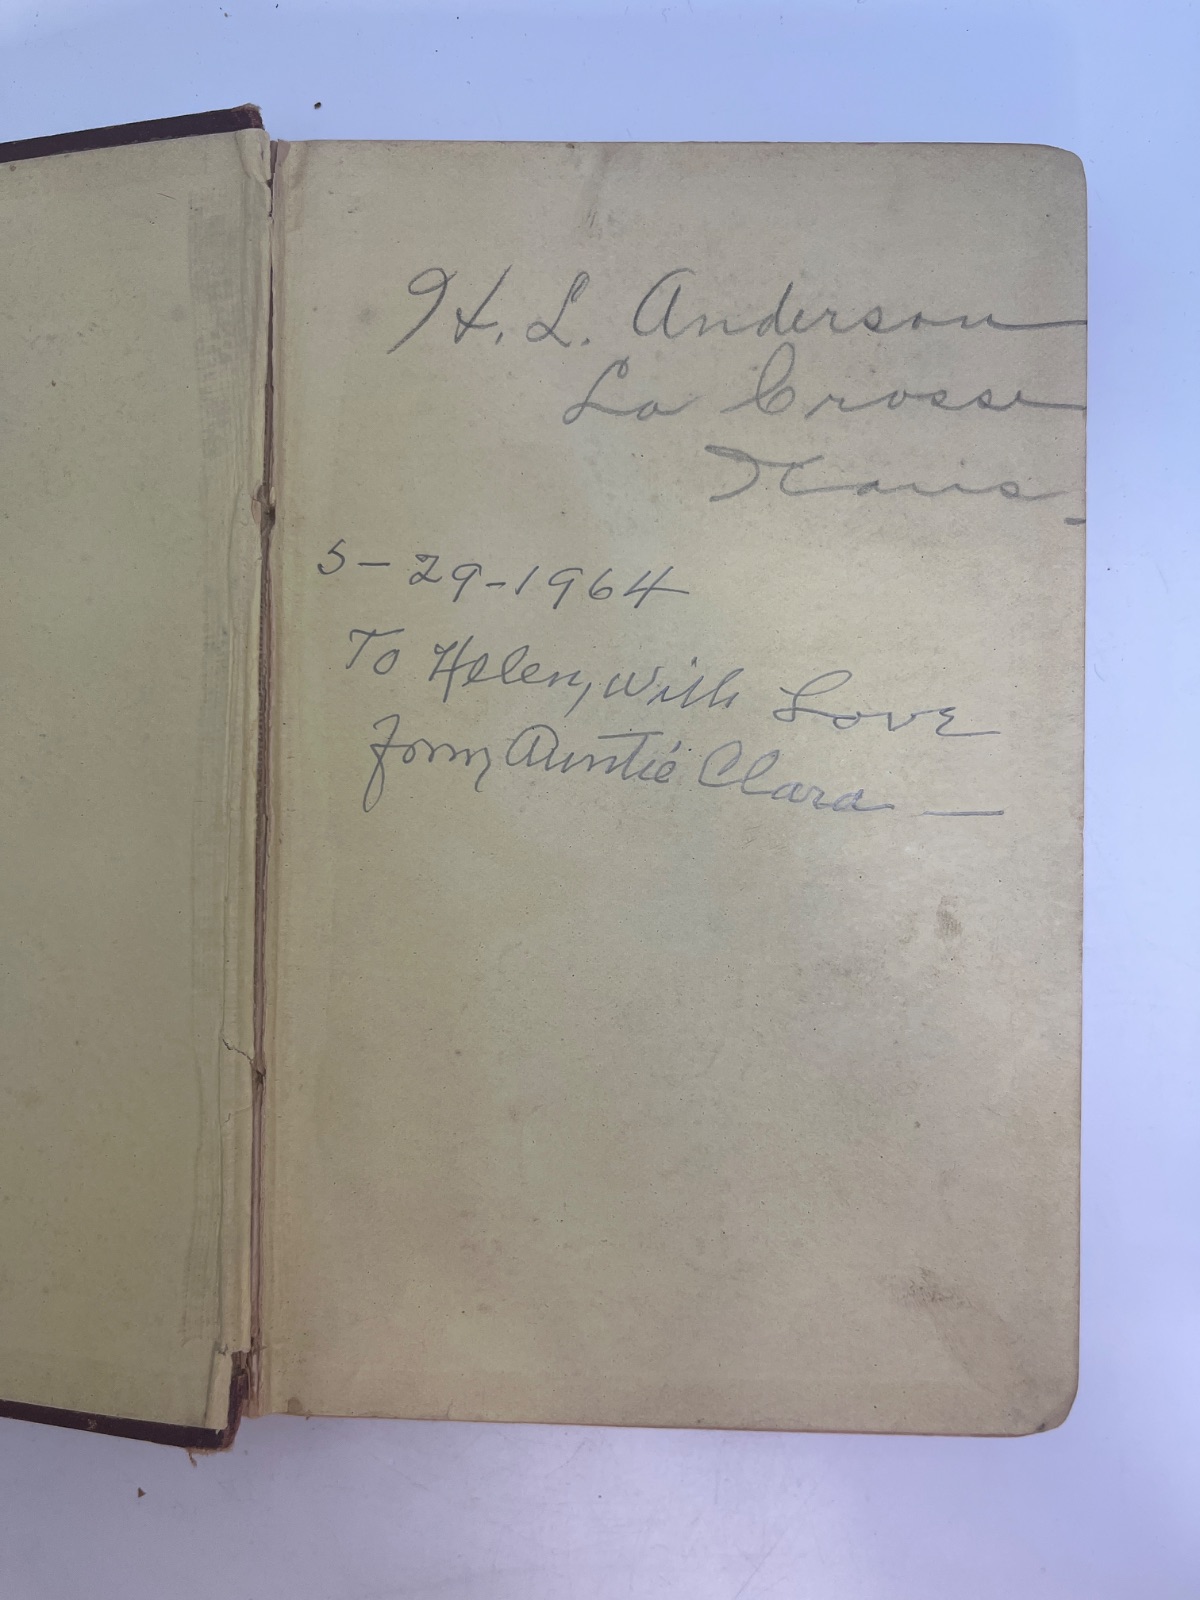 H. L. Anderson
La Crosse
Kans.
5-29-1964
To Helen, With Love
from Auntie Clara —